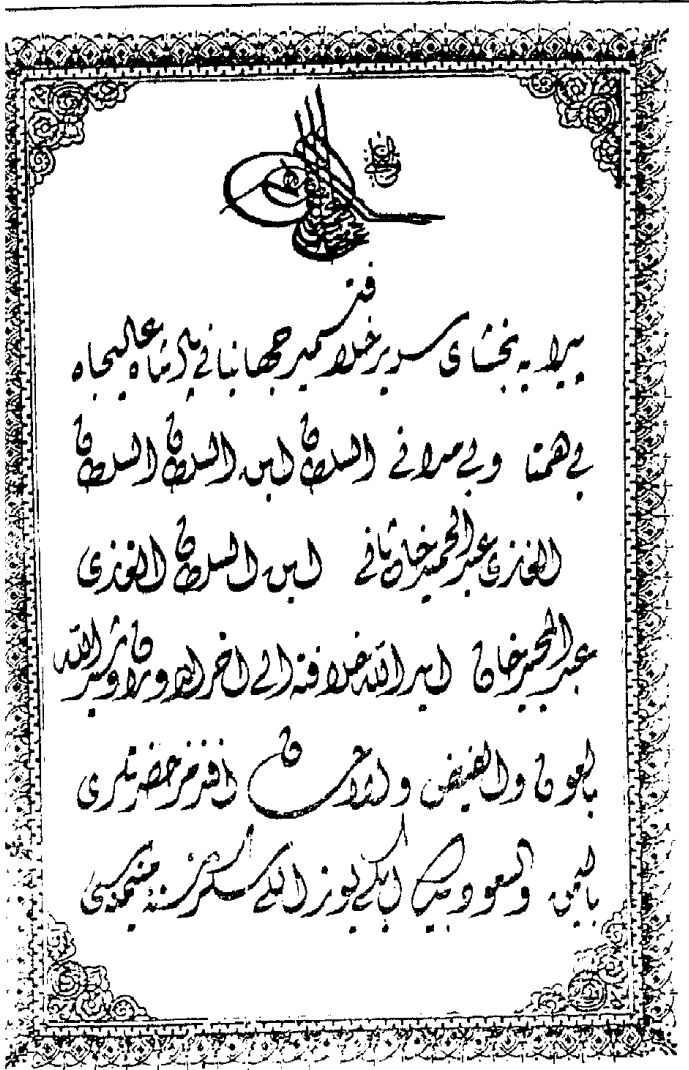 پیرایه بخشای سریر خلافت مصیر جهانبانی پادشاه عالیجاه
بی همتا و بی مدانی السلطان ابن السلطان السلطان
الغازی عبد الحمید خان ثانی ابن السلطان الغازی
عبد المجید خان اید الله خلافته الی اخر الدوران وایده الله
بالعون والفیض والاحسان افندمز حضرتلری
بالیمن والسعود بیک ایکییوز اللی سکز سنه